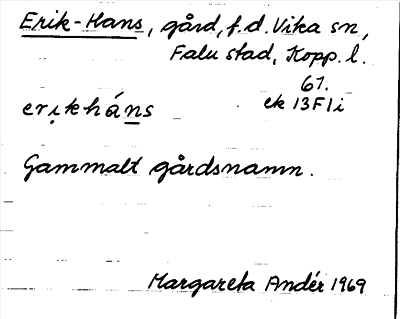 Erik-Hans, gård, f.d. Vika sn,
Falu stad, Kopp. l.
61.
ek 13F1i
erịkháns
Gammalt gårdsnamn.
Margareta Andér 1969